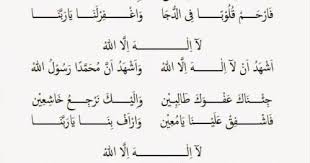 فَارْحَمْ قُلُوْبًا فِى الدُّجَا وَاغْفِرْلَنَا يَارَبَّنَا
لآ اِلٰهَ اِلَّا اللهُ
اَشْهَدُ اَنْ لآ اِلٰهَ اِلَّا اللهُ وَاَشْهَدُ اَنَّ مُحَمَّدًا رَسُوْلُ اللهُ
جِئْنَاكَ عَفْوَكَ طَالِبِيْنَ وَاِلَيْكَ نَرْجِعُ خَاشِعِيْنَ
فَاشْفِقْ عَلَيْنَا يَامُعِيْنَ وَارْاَفْ بِنَا يَارَبَّنَا
لآ اِلٰهَ اِلَّا اللهُ